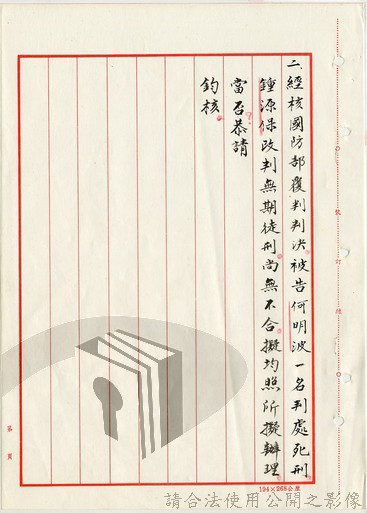 二、經核國防部覆判判決被告何明波一名判處死刑
鍾源保改判無期徒刑尚無不合擬均照所擬辦理
當否恭請
鈞核
裝訂線
第 頁
194×268公厘
請合法使用公開之影像